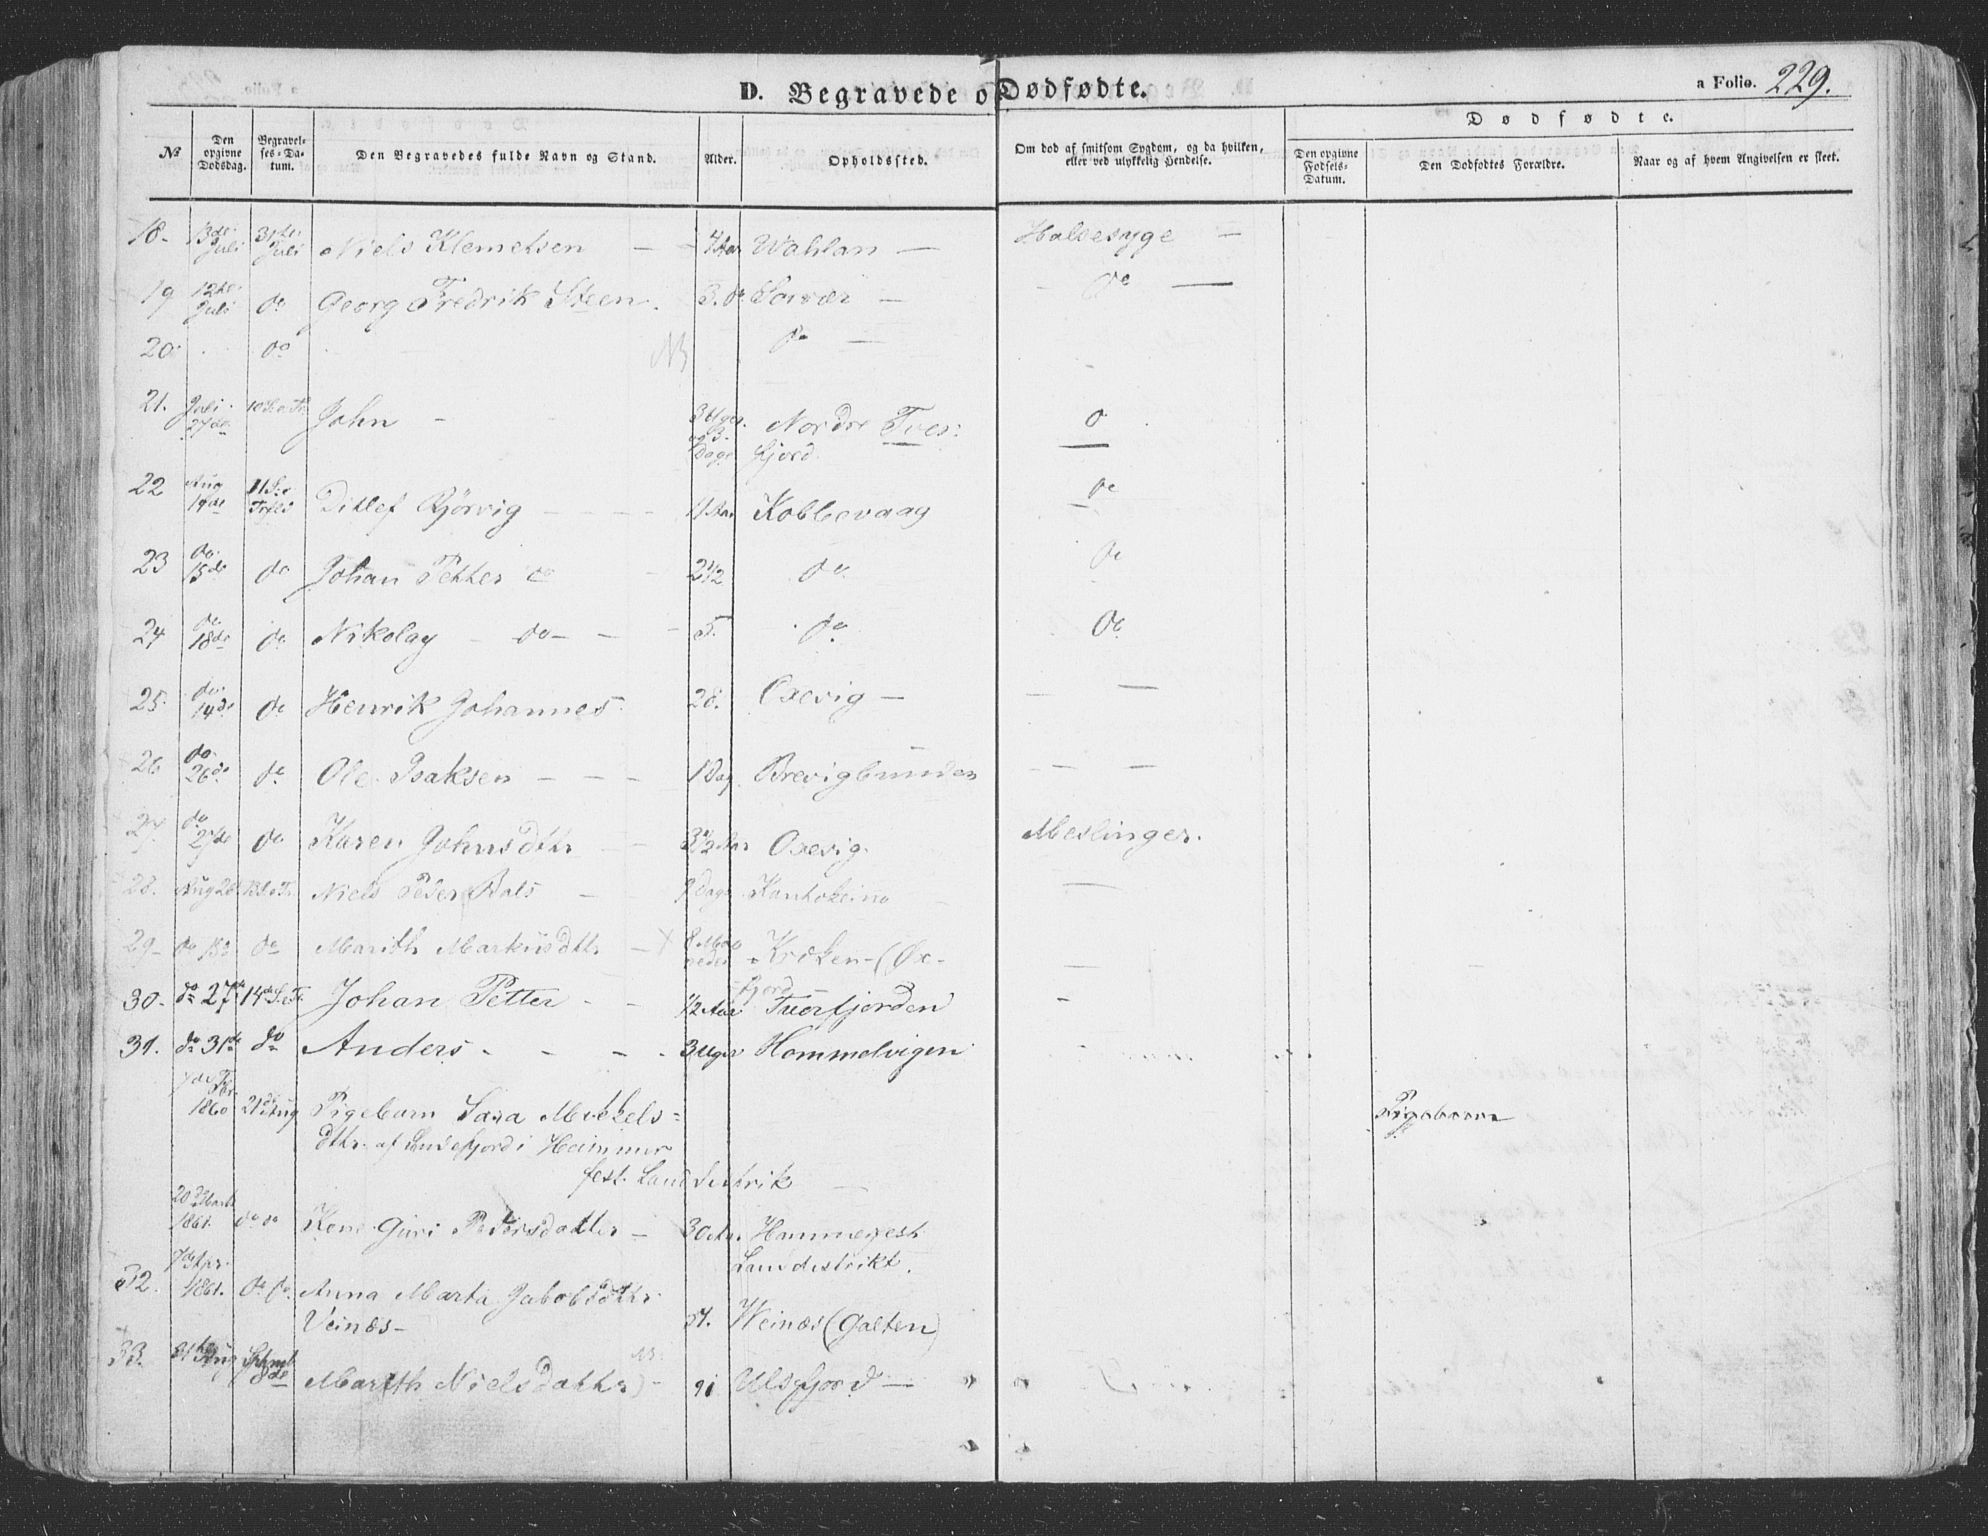 D. Begravede o Dødfødte.
a Folio. 229.
No
Den opgivne Dødsdag.
Begravelses-Datum.
Den Begravedes fulde Navn og Stand.
Alder.
Opholdssted.
Om død af smitsom Sygdom, og da hvilken, eller ved ulykkelig Hendelse.
Dødfødte.
Den opgivne Fødsels-Datum.
Den Dødfødtes Forældre.
Naar og af hvem Angivelsen er skeet.
18- 13de Juli 31te Juli Niels Klemetsen - 4 Aar Wahlan - Halssyge -
19 12te Juli do Georg Fredrik Steen. 3. do Sorvær - do -
20 do NB do -
21. Juli 27de 10 S. e. Tr. John - 3 Uger og 3 Dage Nordre Tves:
fjord. do
22 Aug 14de 11 S. e Trfts Ditlef Rjørvig - 11 Aar Kobbevaag do
23 do 15de do Johan Petter do - 2 1/2 do do
24 do 18de do Nikolay - do - 5. do do
25. do 14de do Henrik Johannes 28. Oxevig - -
26 do 26de do Ole Isaksen - - - 1 Dag Brevigbunden - -
27. do 27de do Karen Johnsdtr - 3 1/2 Aar Oxevig. Meslinger.
28. Aug 28 13 S. e Tr. Niels Peder Bals - Dage Kautokeino -
29- do do Marith Markusdtr - 8 Maaneder Kroken-(Øx-
fjord
30. do 27de 14de S. e. Tr. Johan Petter - - 1/2 Aar Tverfjorden -
31. do 31de do Anders - - - - 3 Uger Hommelvigen
1860 21de Aug Pigebarn Sara Mikkels= Pigebarn
dtr. af fjord i Hammer
fest. Landdistrik -
20de Marts 1861. do do Kone Guri Pedersdatter - 30 Aar. Hammerfest
Landdistrikt.
32. 7de Apr. 1861. do do. Anna Marta Jakobsdtr
Veinæs- 51. Weinæs (Galten)
33. 31te Aug Septembr 8de Marith Nielsdatter - 91 Ulsfjord -